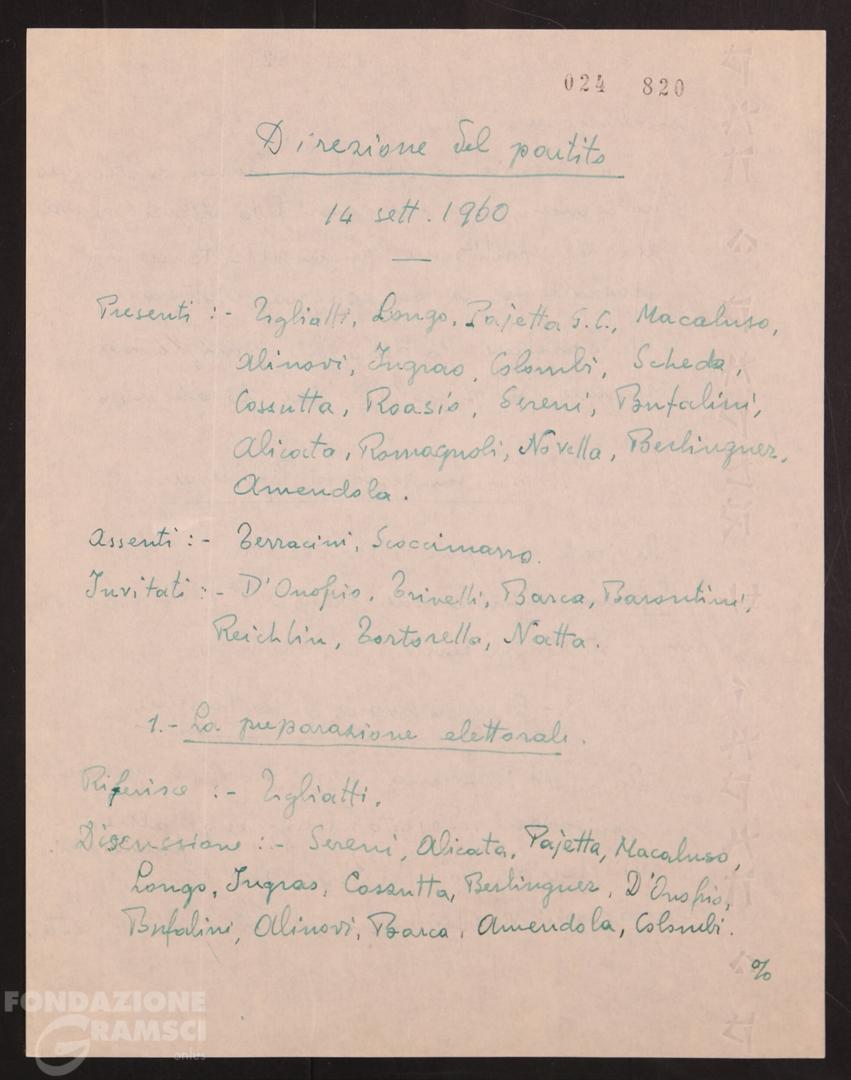 024 820
Direzione del partito
14 sett. 1960
Presenti :- Togliatti, Longo, Pajetta G.C., Macaluso,
Alinovi, Ingrao, Colombi, Scheda,
Cossutta, Roasio, Sereni, Bufalini,
Alicata, Romagnoli, Novella, Berlinguer,
Amendola.
Assenti :- Terracini, Scoccimarro.
Invitati :- D'Onofrio, Trivelli, Barca, Barontini,
Reichlin, Tortorella, Natta.
1.- La preparazione elettorale.
Riferisce :- Togliatti.
Discussione :- Sereni, Alicata, Pajetta, Macaluso,
Longo, Ingrao, Cossutta, Berlinguer, D'Onofrio,
Bufalini, Alinovi, Barca, Amendola, Colombi.
%
FONDAZIONE
GRAMSCI
onlus